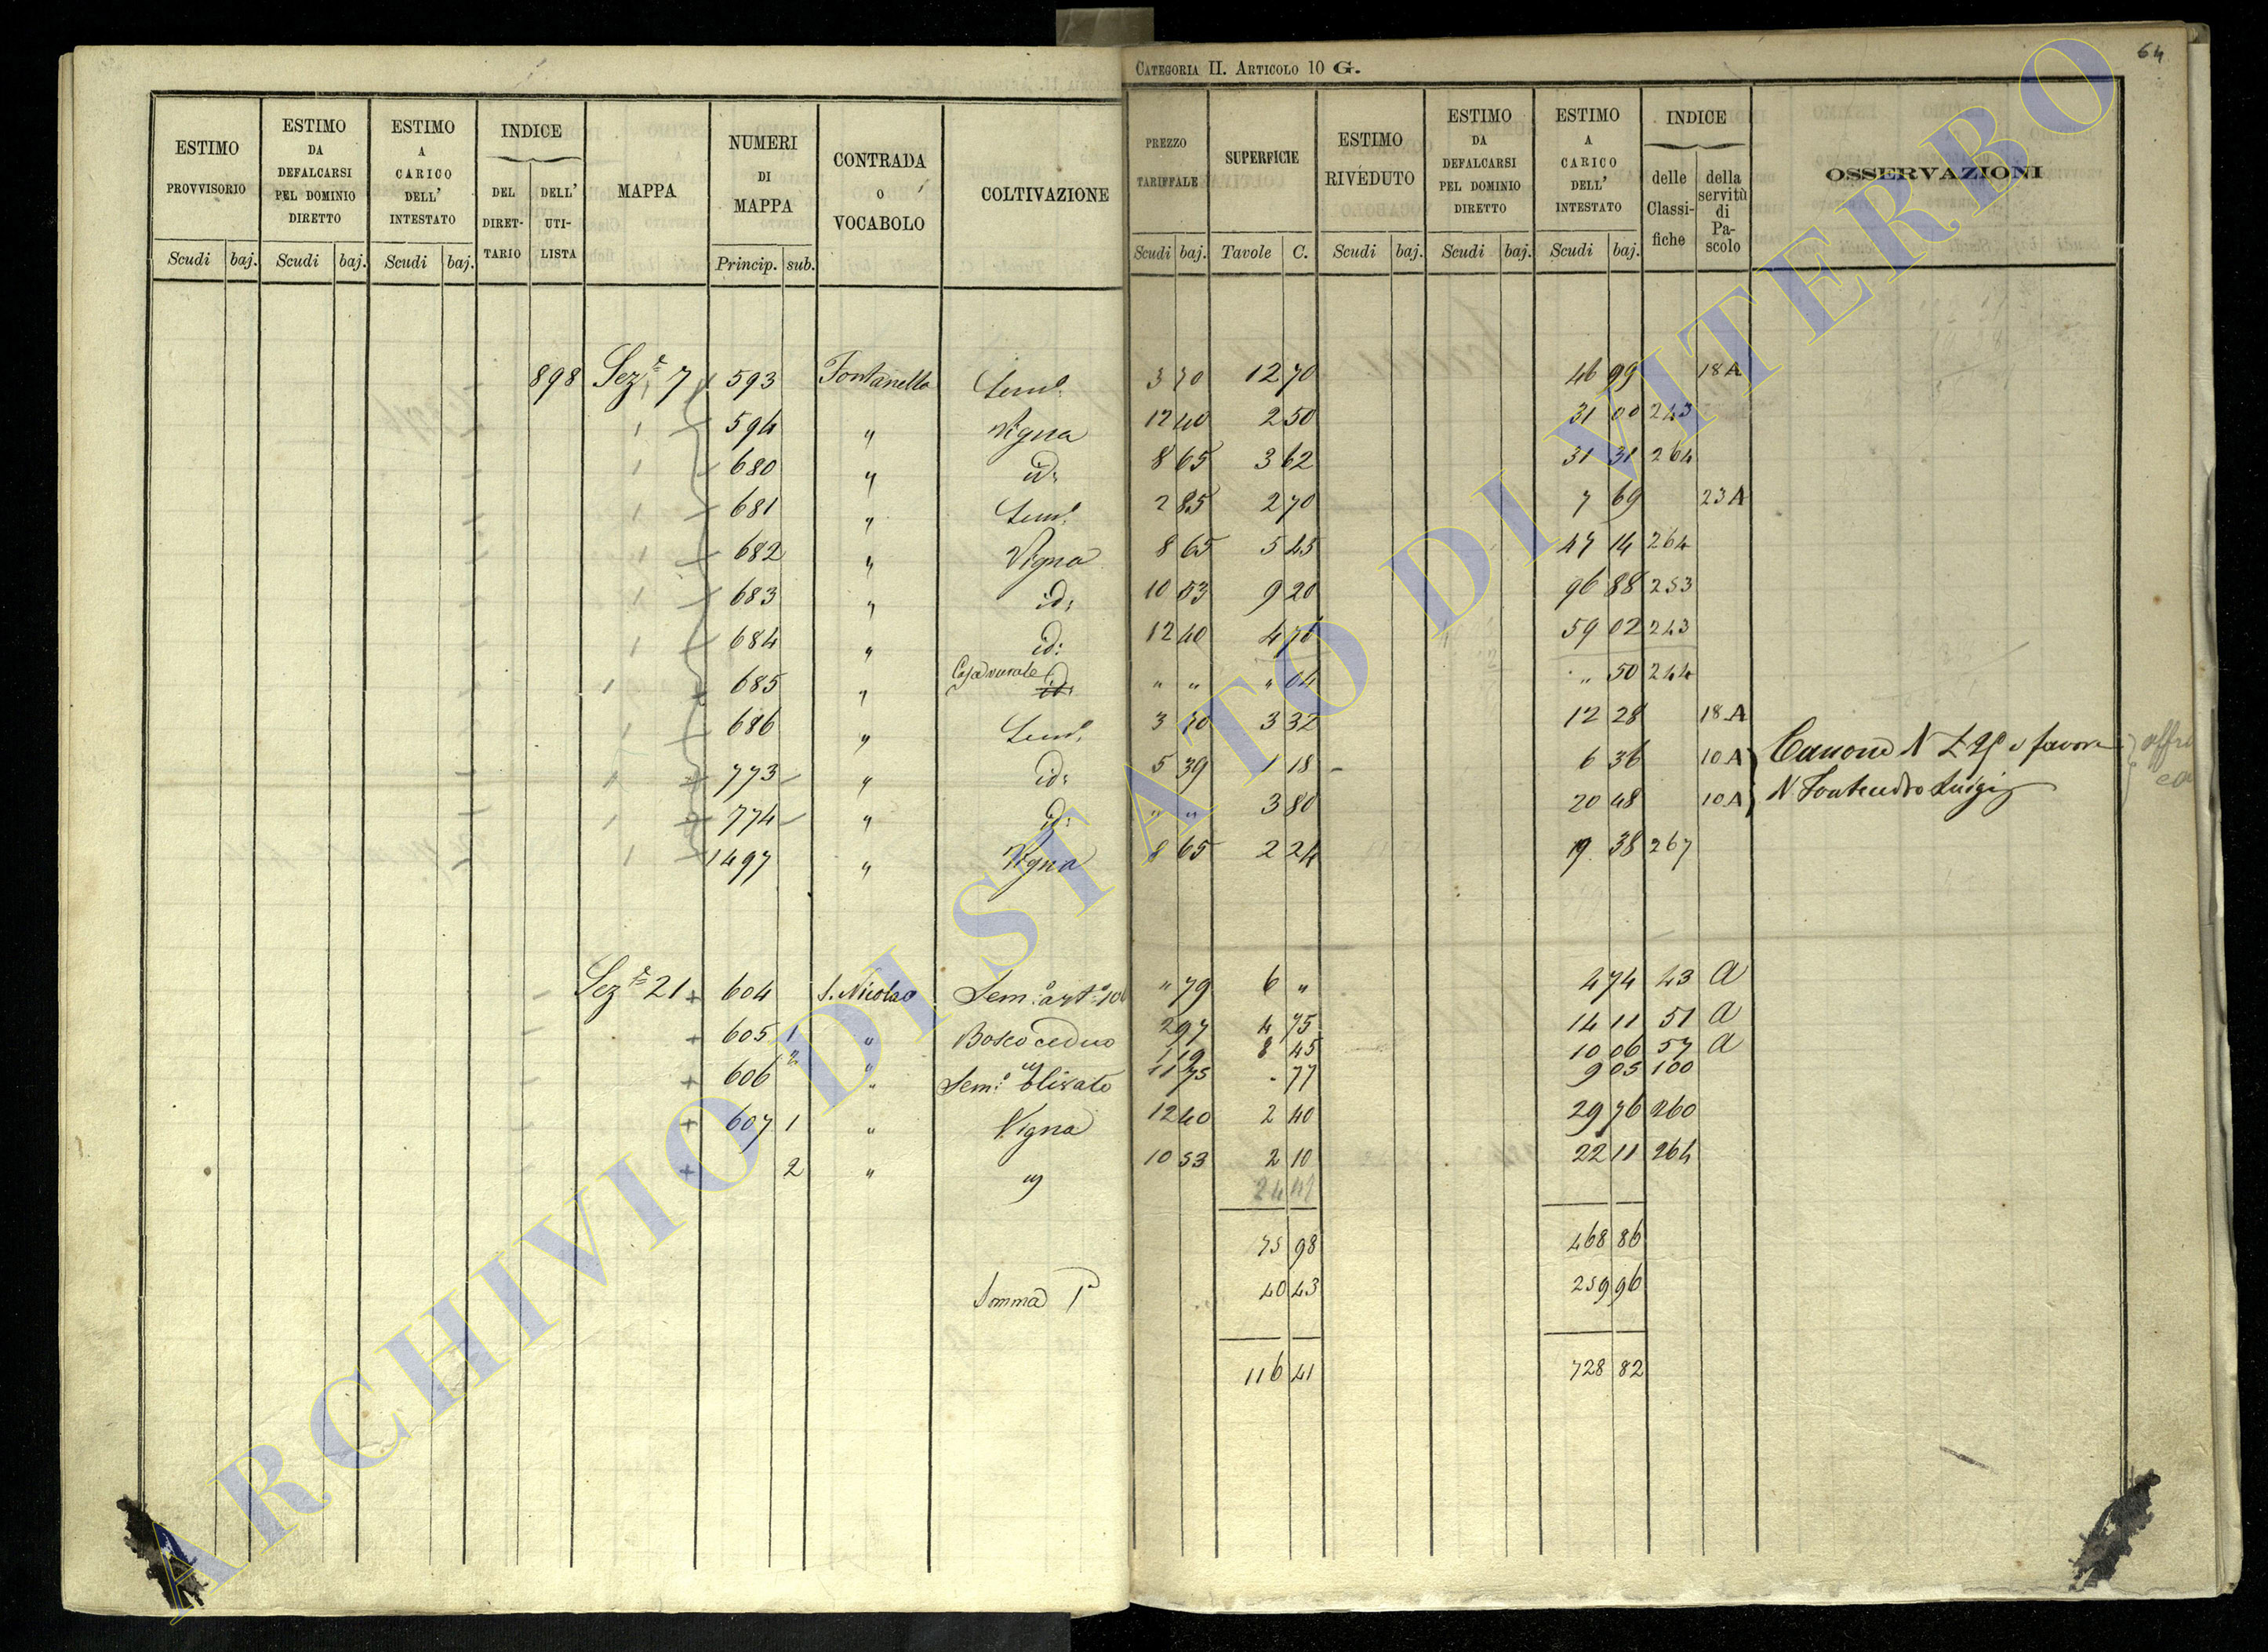 64
CATEGORIA II. ARTICOLO 10 G.
ESTIMO PROVVISORIO | ESTIMO DA DEFALCARSI PEL DOMINIO DIRETTO | ESTIMO A CARICO DELL' INTESTATO | INDICE DEL DIRETTARIO | DELL' UTILISTA | MAPPA | NUMERI DI MAPPA | CONTRADA O VOCABOLO | COLTIVAZIONE | PREZZO TARIFFALE | SUPERFICIE | ESTIMO RIVEDUTO | ESTIMO DA DEFALCARSI PEL DOMINIO DIRETTO | ESTIMO A CARICO DELL' INTESTATO | INDICE delle Classifiche | della servitù di Pascolo | OSSERVAZIONI
Scudi | baj. | Scudi | baj. | Scudi | baj. | Princip. | sub. | Scudi | baj. | Tavole | C. | Scudi | baj. | Scudi | baj. | Scudi | baj.
898 Sez.e 7 593 Fontanella Sem.o 3 70 12 70 46 99 18 A
594 " Vigna 12 40 2 50 31 00 243
680 " id: 8 65 3 62 31 31 264
681 " Sem.o 2 85 2 70 7 69 23 A
682 " Vigna 8 65 5 45 47 14 264
683 " id: 10 53 9 20 96 88 253
684 " id: 12 40 4 76 59 02 243
685 " Casa rurale " " " 04 " 50 244
686 " Sem.o 3 70 3 32 12 28 18 A
773 " id: 5 39 1 18 6 36 10 A Canone N
774 " id: " " 3 80 20 48 10 A Luigi
1497 " Vigna 8 65 2 24 19 38 267
Sez.e 21 604 S. Nicolao Sem.o " 79 6 " 4 74 43 A
605 1 " Bosco ceduo 2 97 4 75 14 11 51 A
2 " " 1 19 8 45 10 06 57 A
606 " Sem.o olivato 11 75 - 77 9 05 100
607 1 " Vigna 12 40 2 40 29 76 260
2 " " 10 53 2 10 22 11 264
75 98 468 86
Somma P 40 43 259 96
116 41 728 82
ARCHIVIO DI STATO DI VITERBO